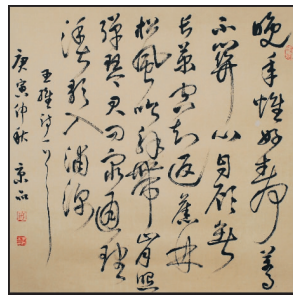 晚年惟好静萬
事不關心自顧無
長策空知返舊林
松風吹解帶山月照
彈琴君問窮通理
漁歌入浦深
王維詩一首
庚寅仲秋